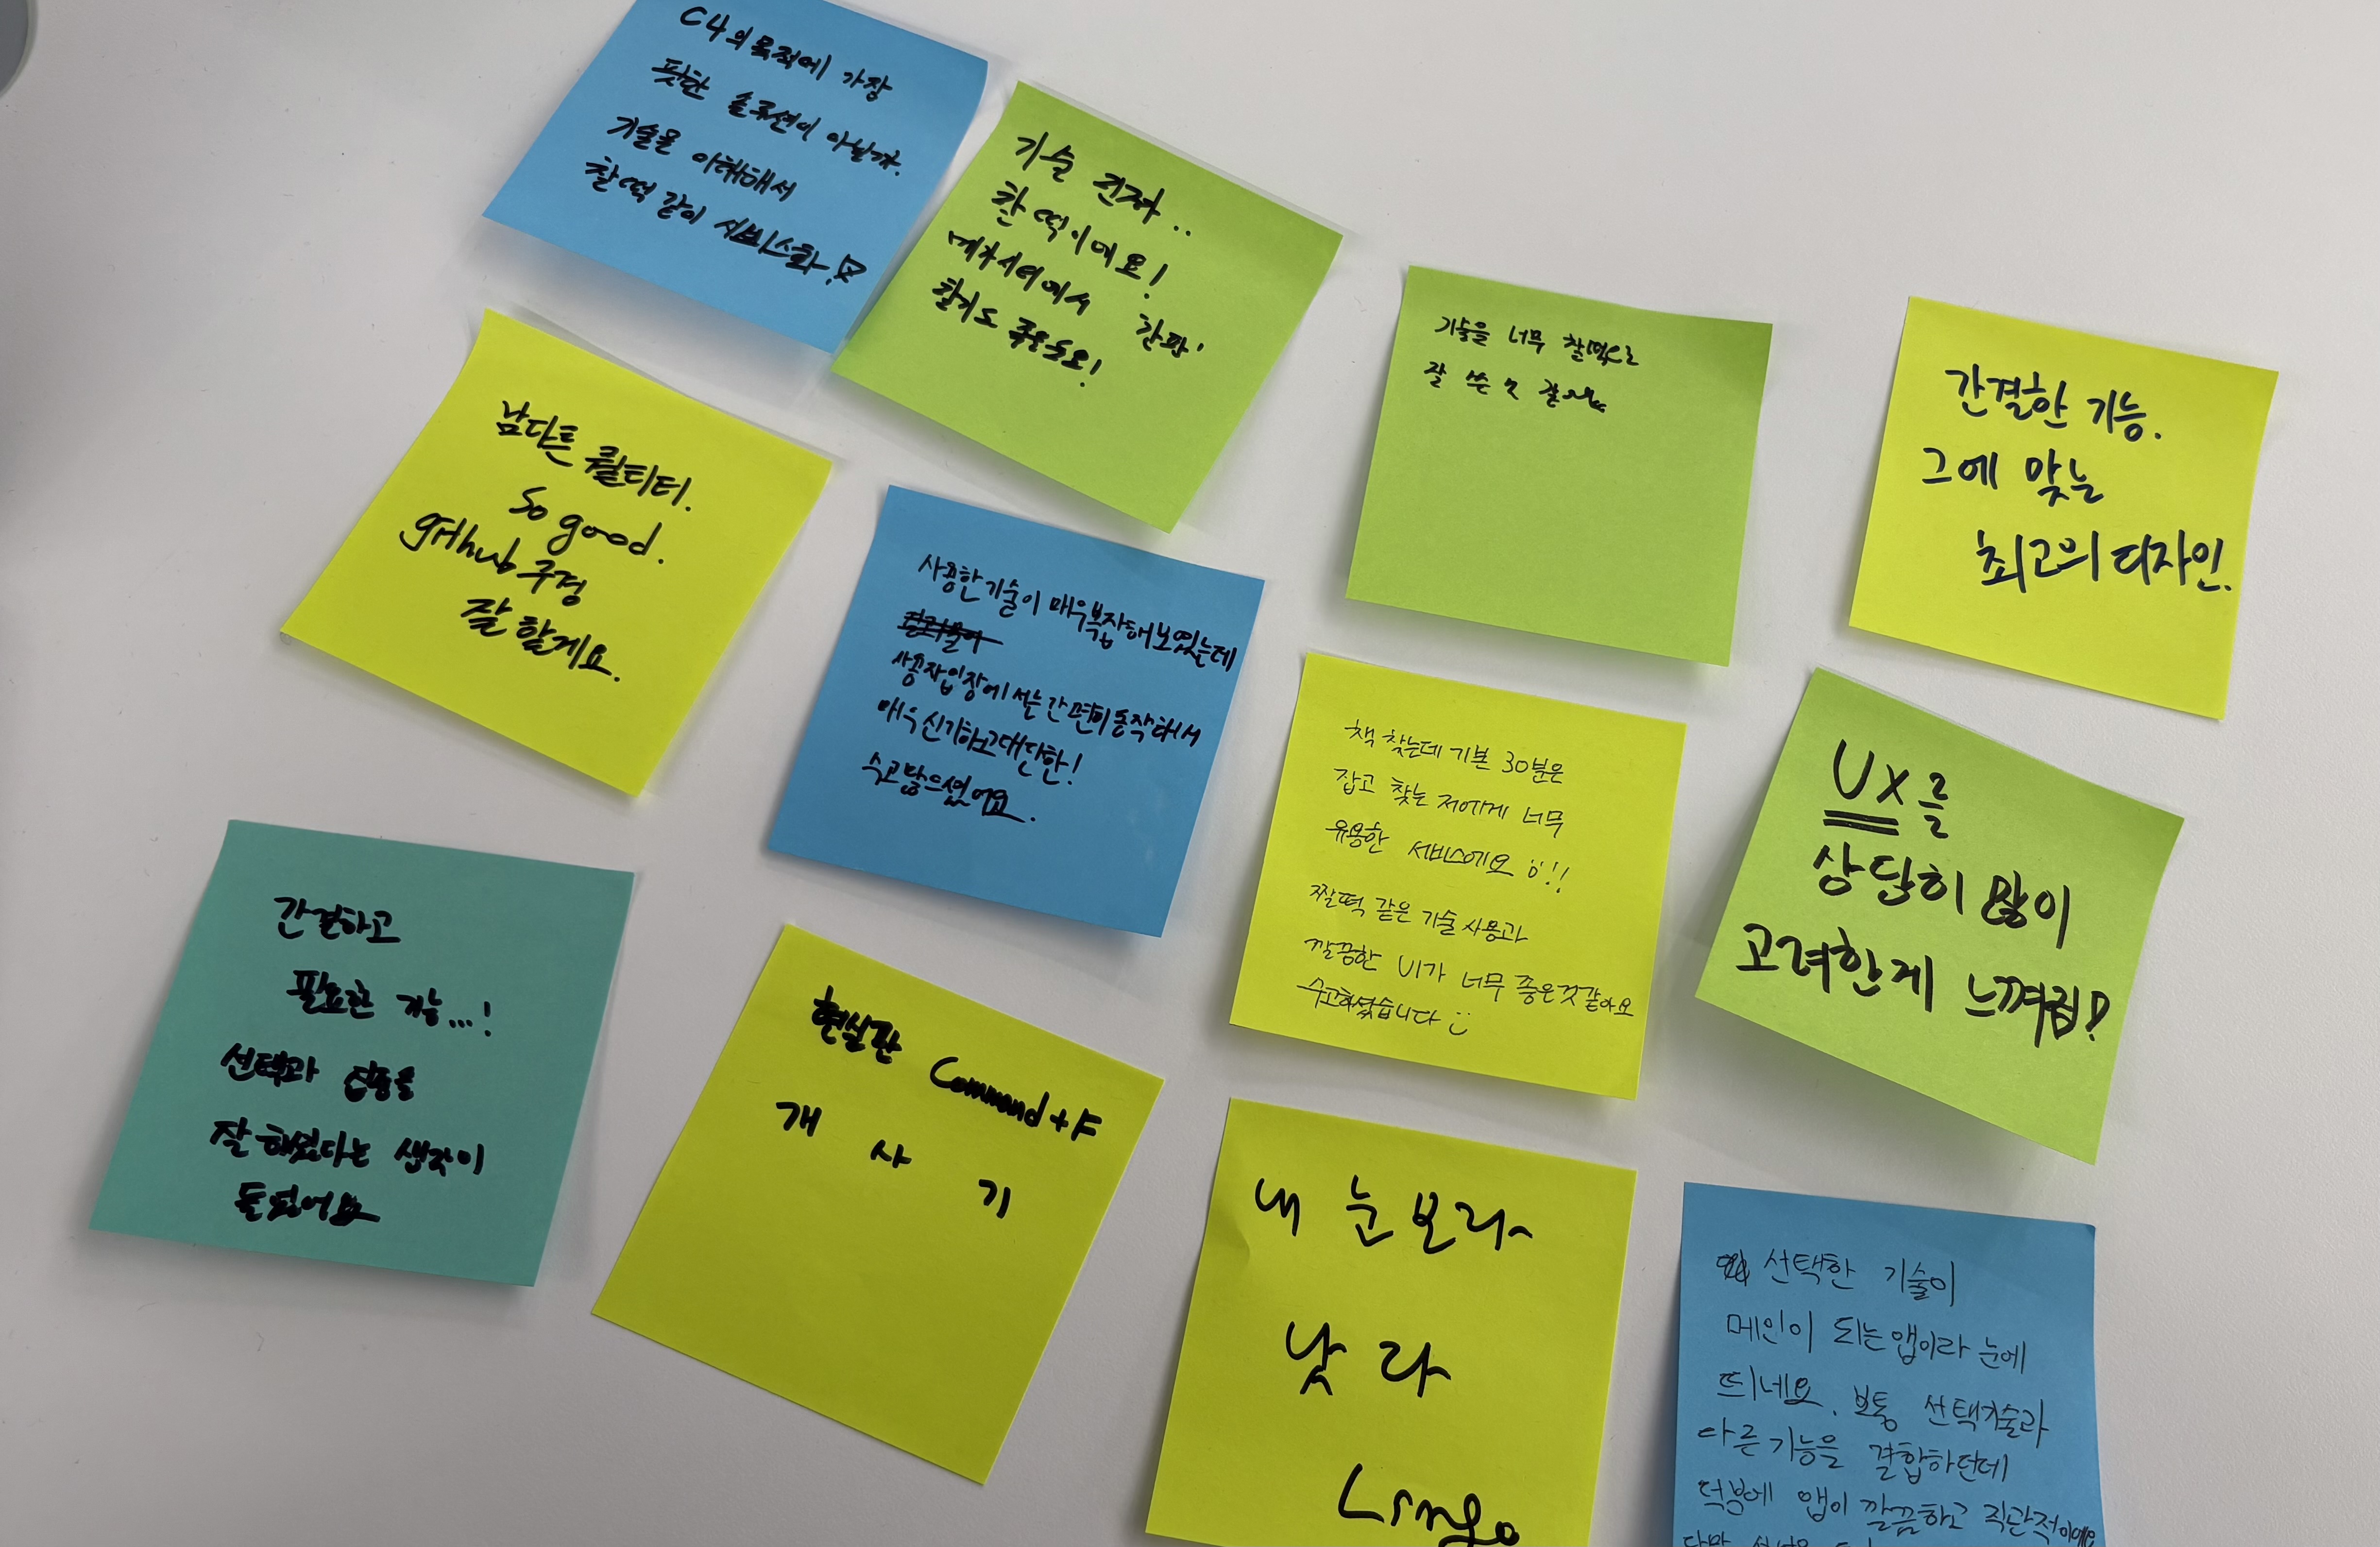 C4의 목적에 가장
핏한 솔루션이 아닐까.
기술을 이해해서
찰떡 같이 서비스화!
기술 진짜..
찰떡이에요!
메가시티에서 한판!
할게도 좋을듯요!
기술을 너무 찰떡으로
잘 쓴 것 같아요
간결한 기능.
그에 맞는
최고의 디자인.
남다른 퀄티티.
So good.
github 구경
잘 할게요.
사용한 기술이 매우 복잡해 보였는데
사용자 입장에서는 간편히 동작해서
매우 신기하고 대단한!
수고 많으셨어요.
책 찾는데 기본 30분은
잡고 찾는 저에게 너무
유용한 서비스에요 !!
찰떡 같은 기술 사용과
깔끔한 UI가 너무 좋은것같아요
수고하셨습니다 :)
UX를
상당히 많이
고려한게 느껴짐!
간결하고
필요한 기능...!
선택과 집중을
잘 하였다는 생각이
들었어요
현실판 Command+F
개
사
기
내 눈 보다~
낫 다
Lingo
선택한 기술이
메인이 되는 앱이라 눈에
띄네요. 보통 선택기술과
다른 기능을 결합하던데
덕분에 앱이 깔끔하고 직관적이에요